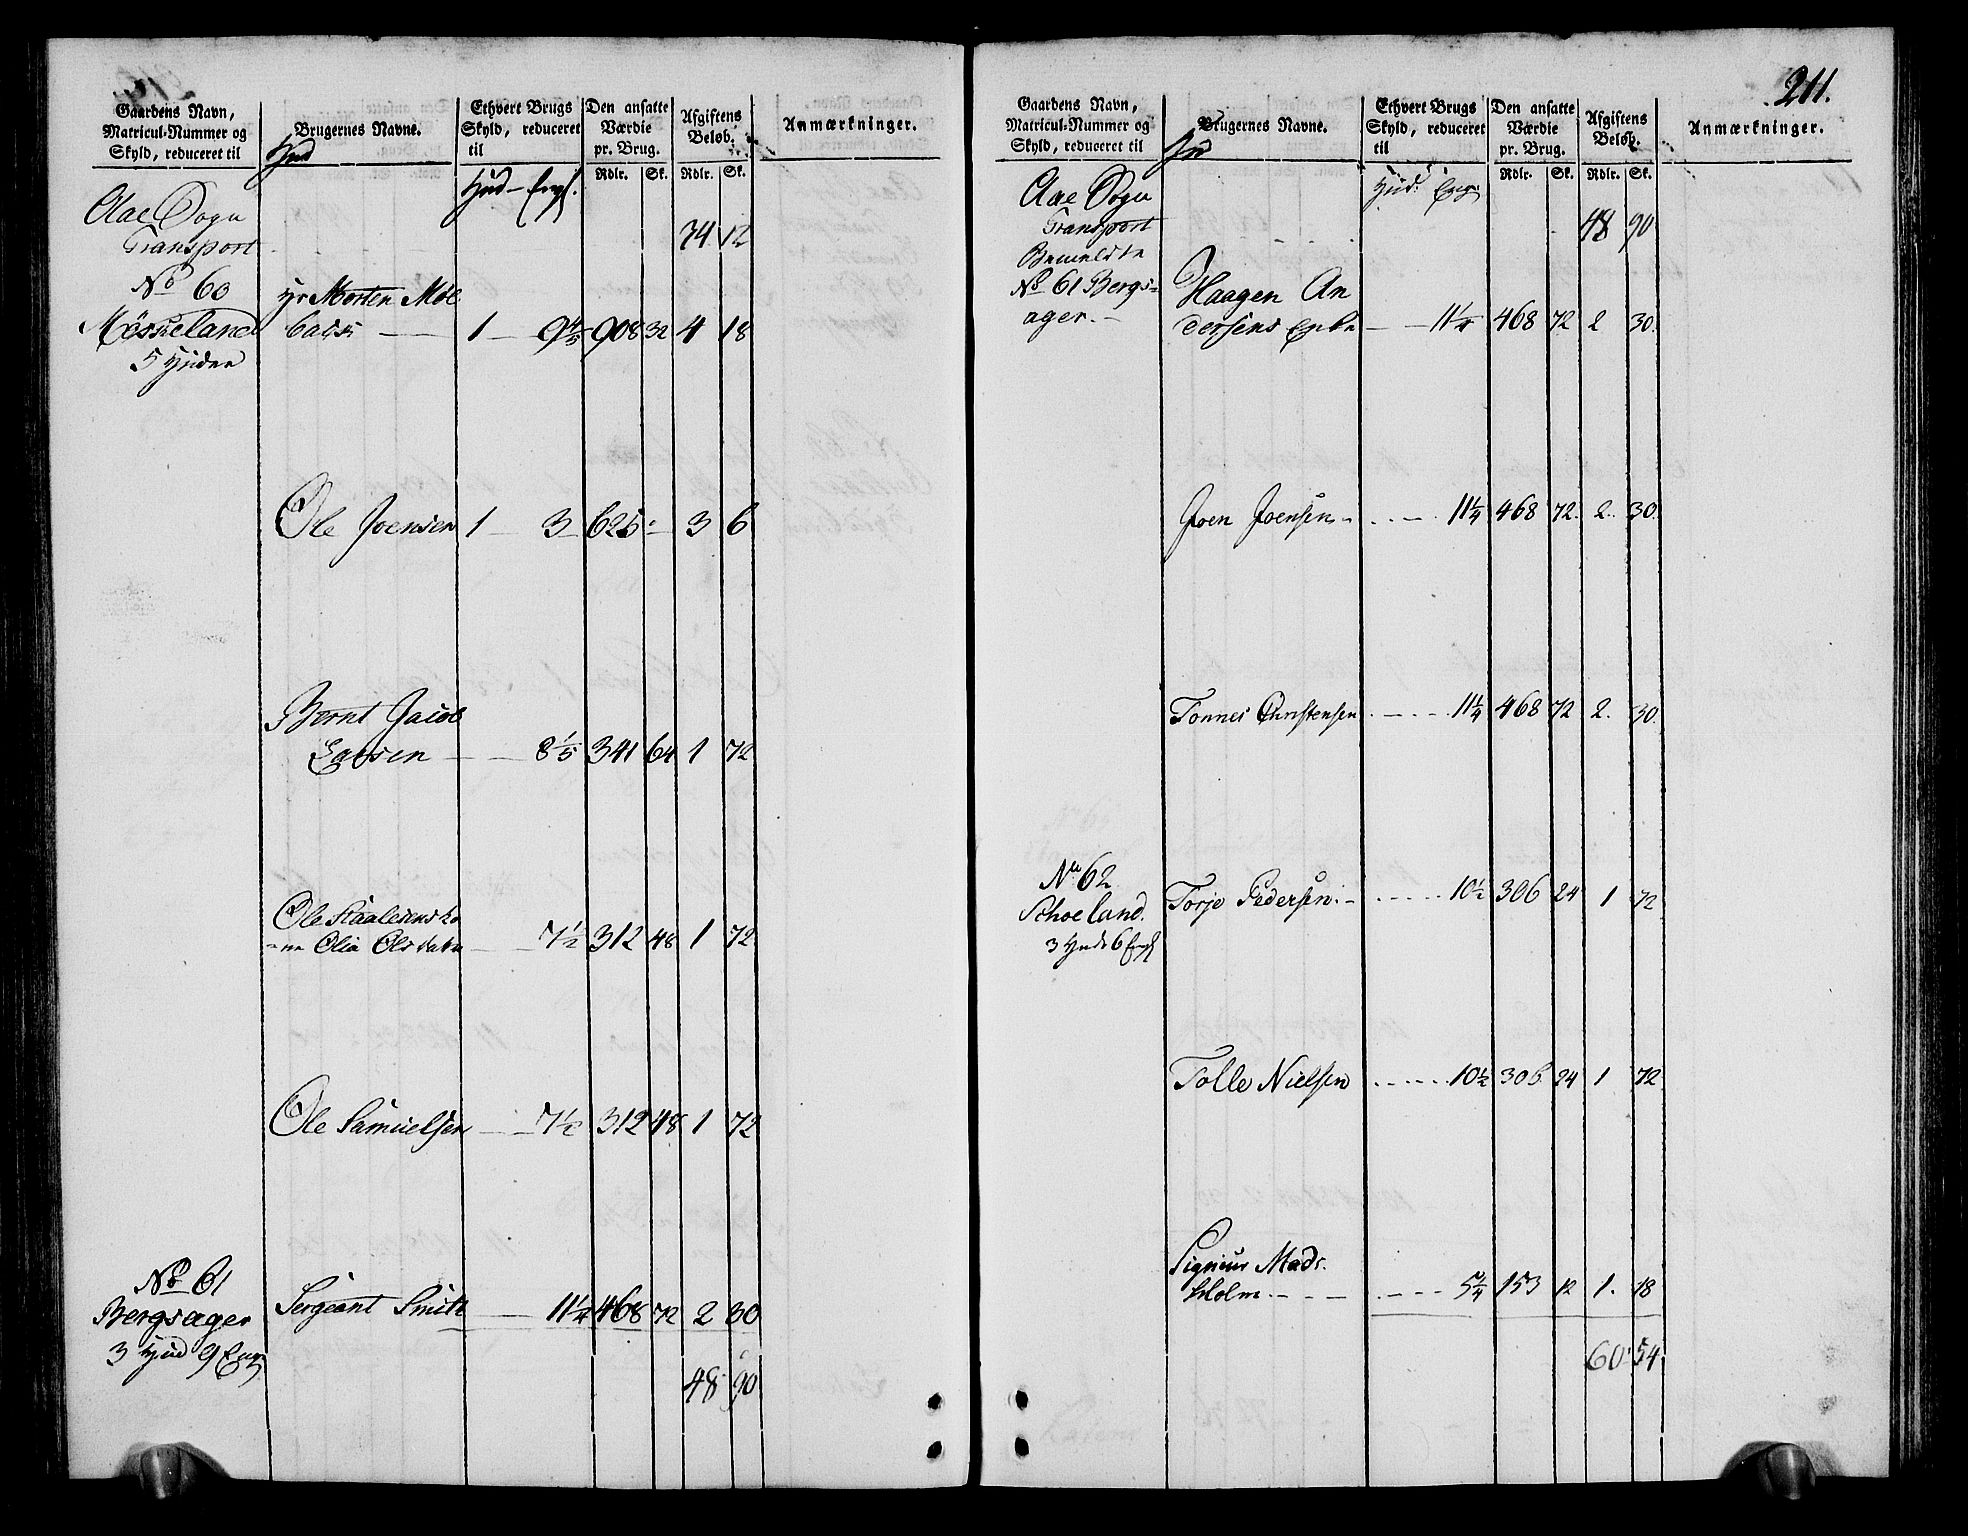 Gaardens Navn,
Matricul-Nummer og
Skyld, reduceret til
Hud
Brugernes Navne.
Ethvert Brugs
Skyld, reduceret
til
Hud Engl.
Den ansatte
Værdie
pr. Brug.
Rdlr. Sk.
Afgiftens
Beløb.
Rdlr. Sk.
Anmærkninger.
Aae Sogn
Transport 34 12
No 60
Møsseland
5 Huder
Hr Morten Møl
bacs 1 9 4/5 908 32 4 18
Ole Joensen 1 3 625 3 6
Bernt Jacob
Larsen 8 1/5 341 64 1 72
Ole Staalesens ko
ne Olia Olsdatter 7 1/2 312 48 1 72
Ole Samuelsen 7 1/2 312 48 1 72
No 61
Bergsager
3 Hud 9 Eng
Sergeant Smith 11 1/4 468 72 2 30
48 90
211.
Gaardens Navn,
Matricul-Nummer og
Skyld, reduceret til
Brugernes Navne.
Ethvert Brugs
Skyld, reduceret
til
Hud. Eng.
Den ansatte
Værdie
pr. Brug.
Rdlr. Sk.
Afgiftens
Beløb.
Rdlr. Sk.
Anmærkninger.
Aae Sogn
Transport 48 90
Bemeldte
No 61 Bergs-
ager.
Haagen An
dersens Enke 11 1/4 468 72 2 30.
Joen Joensen 11 1/4 468 72. 2. 30.
Tonnes Christensen 11 1/4 468 72 2. 30.
No 62
Schoeland.
3 Hud 6 Engl
Torje Pedersen 10 1/2 306 24 1 72
Tolle Nielsen 10 1/2 306 24 1 72
Signeur Mads
Holm 5 1/4 153 12 1. 18
60 54